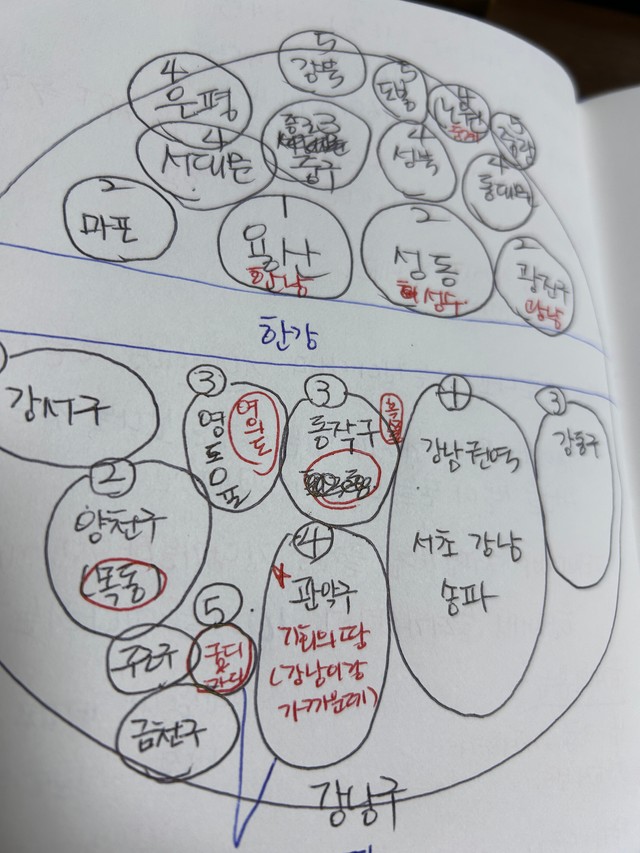 5
강북
4
은평
5
도봉
4
노원
5
중랑
4
서대문
종로 3
중구
4
성북
4
동대문
2
마포
1
용산
한남
2
성동
성수
2
광진구
광남
한강
강서구
3
영등포
여의도
3
동작구
흑석
1
강남권역
서초 강남
송파
3
강동구
2
양천구
(목동)
4
관악구
기회의 땅
(강남이랑
가까운데)
5
구로구
금천구
강남구